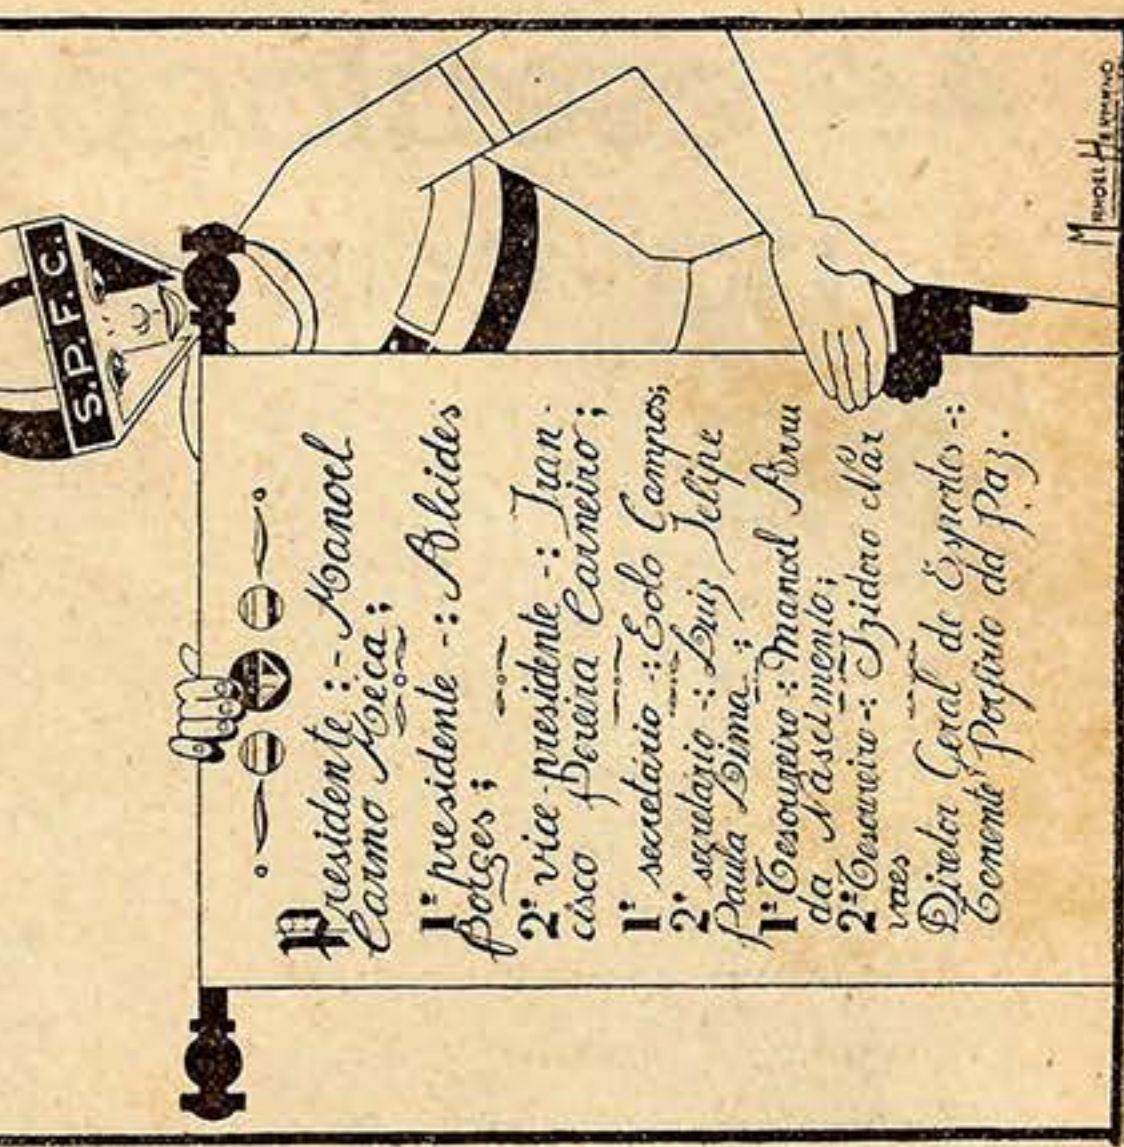 S.P.F.C.
Presidente :- Manoel
Carmo Méca ;
1º presidente -: Alcides
Borges ;
2º vice-presidente -: Fran-
cisco Pereira Carneiro ;
1º secretário -: Eolo Campos;
2º secretário -: Luiz Felipe
Paula Lima ;
1º Tesouzeiro -: Manoel Arru
da Nascimento ;
2º Tesoureiro -: Izidoro Nar
vaes
Diretor Geral de Esportes -:
Tenente Porfirio da Paz.